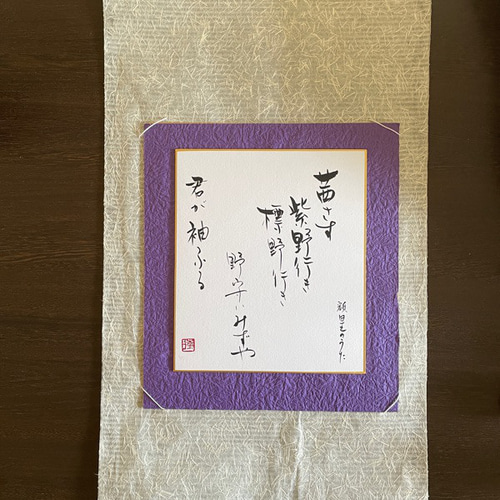 茜さす
紫野行き
標野行き
野守はみずや
君が袖ふる
額田王のうた